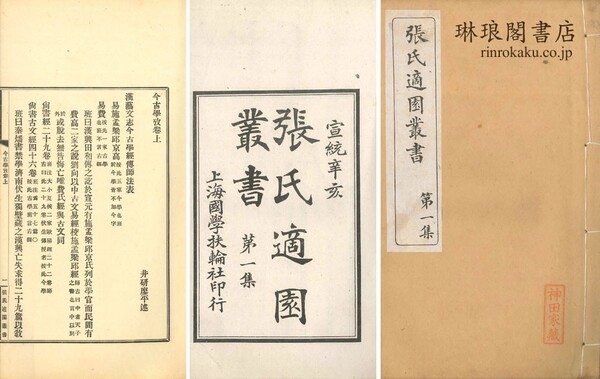 琳琅閣書店
rinrokaku.co.jp
張氏適園叢書 第一集
神田家藏
宣統辛亥
張氏適園
叢書 第一集
上海國學扶輪社印行
今古學攷卷上
井研廖平述
漢藝文志今古學經傳師法表
易施孟梁邱京高
易費
班曰漢興田和傳之訖於宣元有施孟梁邱京氏列於學官而民間有
費高二家之說劉向以中古文易經校施孟梁邱經
或脫去無咎悔亡唯費氏經與古文同
尚書經二十九卷
尚書古文經四十六卷
班曰秦燔書禁學濟南伏生獨壁藏之漢興亡失求得二十九篇以教
今古學攷上
一
張氏適園叢書